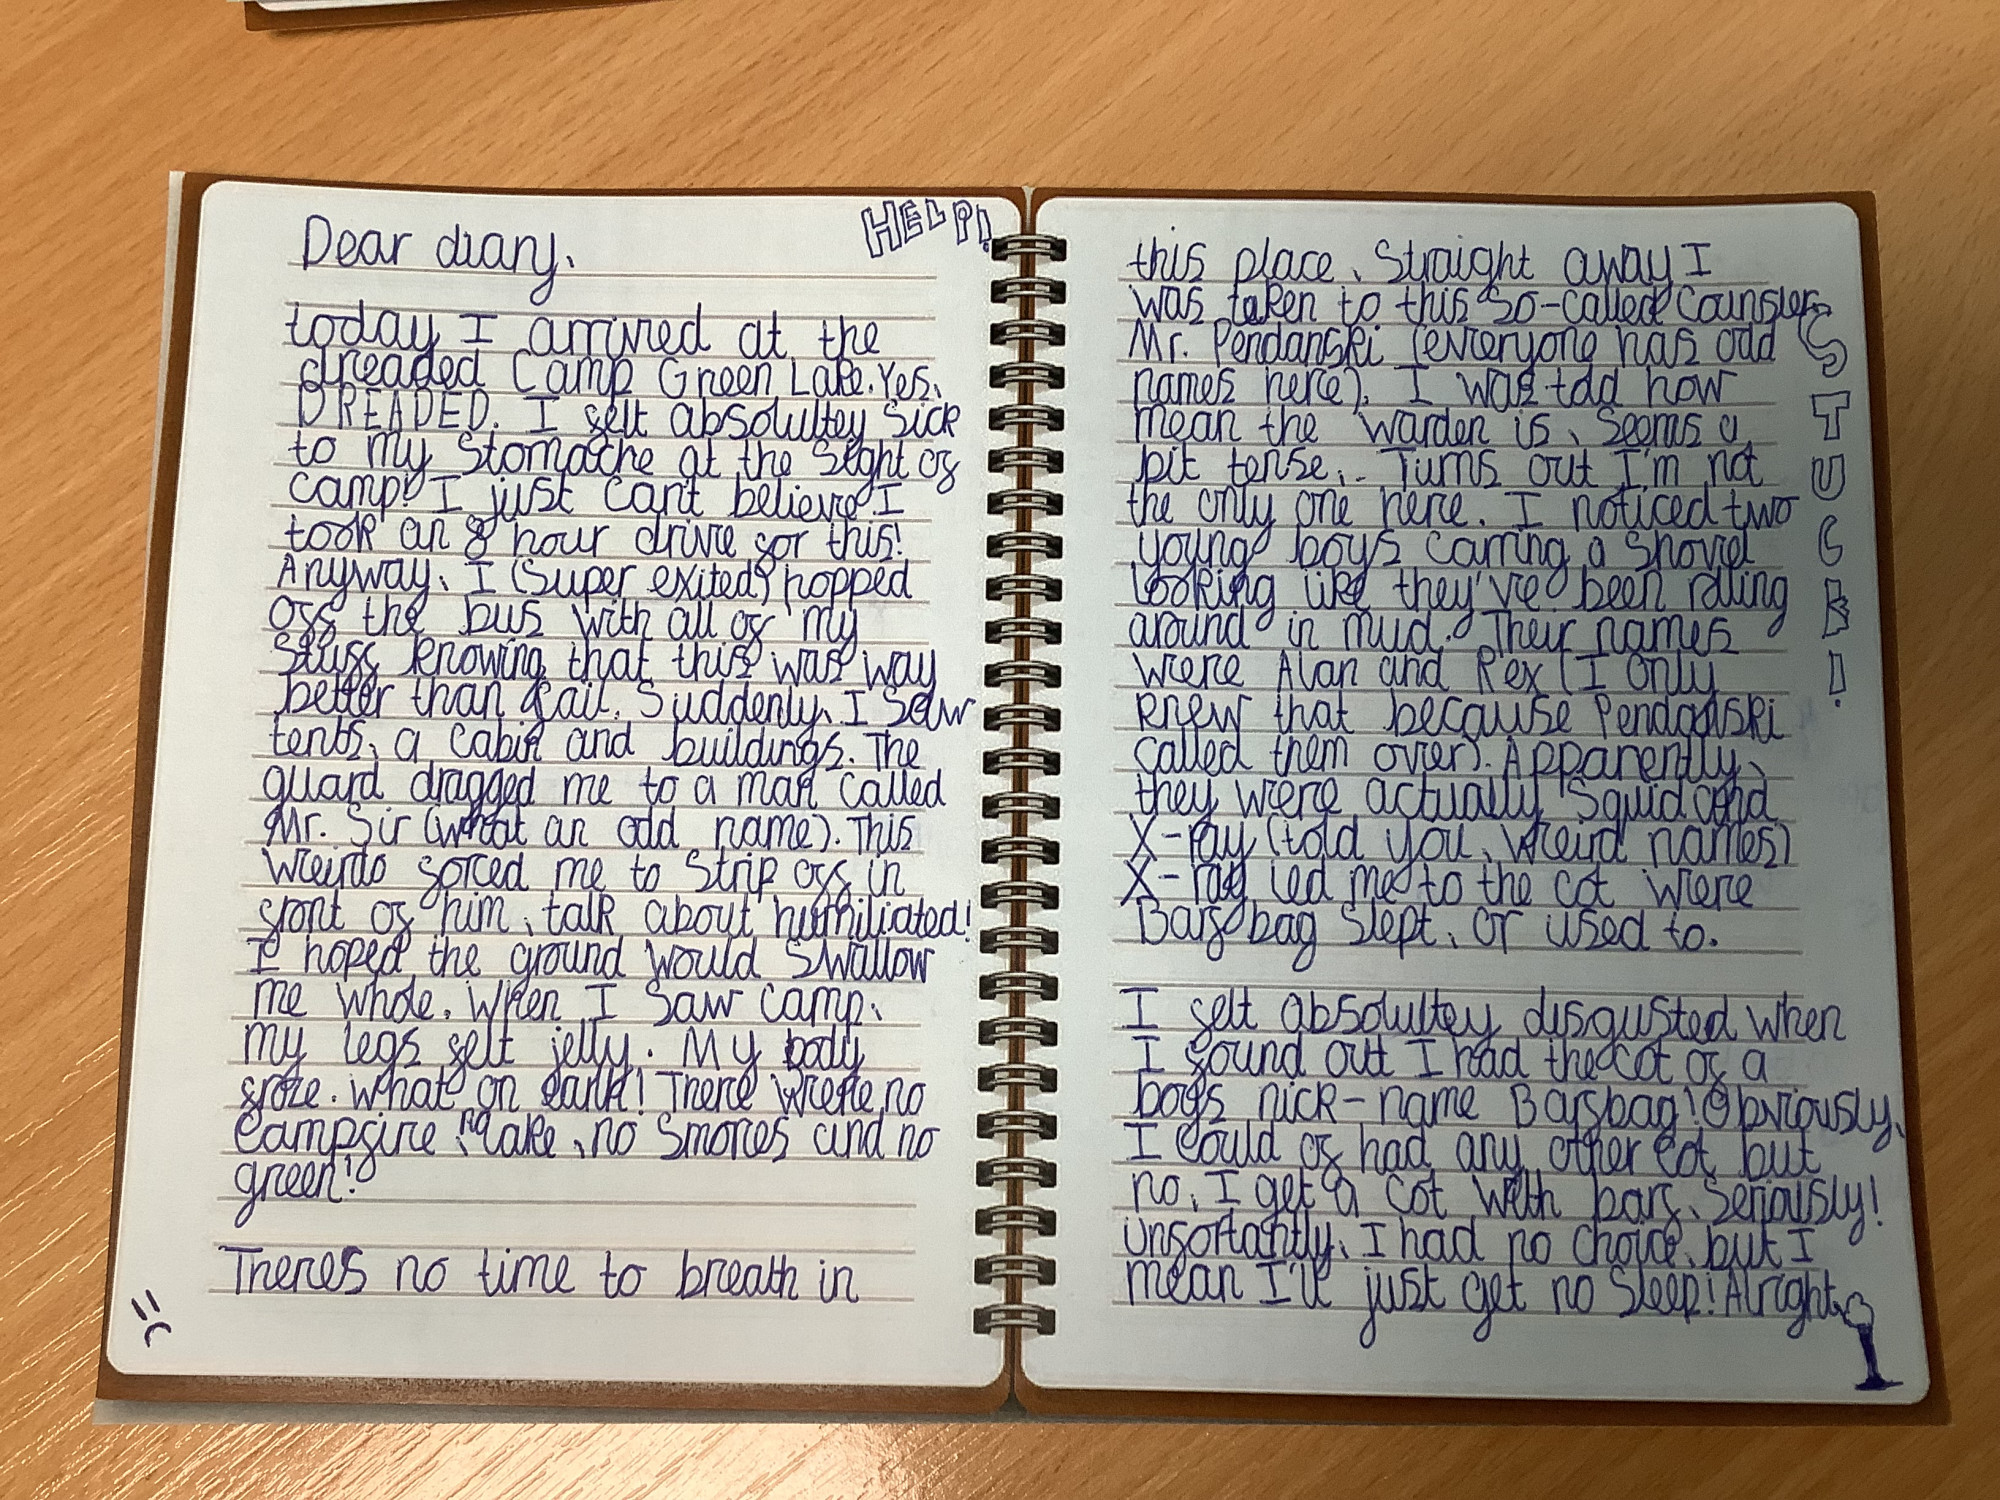 HELP!
Dear diary,
today I arrived at the
dreaded Camp Green Lake. Yes,
DREADED. I felt absolultey sick
to my stomache at the sight of
camp! I just can't believe I
took an 8 hour drive for this!
Anyway, I (super exited) hopped
off the bus with all of my
stuff knowing that this was way
better than jail. Suddenly, I saw
tents, a cabin and buildings. The
guard dragged me to a man called
Mr. Sir (what an odd name). This
wierdo forced me to strip off in
front of him, talk about humiliated!
I hoped the ground would swallow
me whole. When I saw camp,
my legs felt jelly. My body
froze. What on earth! There were no
campfire, no lake, no smores and no
green!
Theres no time to breath in
this place. Straight away I
was taken to this so-called Counsler,
Mr. Pendanski (everyong has odd
names here). I was told how
mean the warden is, seems a
bit tense... Turns out I'm not
the only one here. I noticed two
young boys carring a shovel
looking like they've been rolling
around in mud. Their names
were Alan and Rex (I only
knew that because Pendanski
called them over). Apparently,
they were actually Squid and
X-ray (told you, wierd names)
X-ray led me to the cot were
Barfbag slept, or used to.
I felt absolultey disgusted when
I found out I had the cot of a
boys nick-name Barfbag! Obviously,
I could of had any other cot but
no, I get a cot with barf. Seriously!
Unfortantly, I had no choice, but I
mean I'll just get no sleep! Alright,
STUCK!